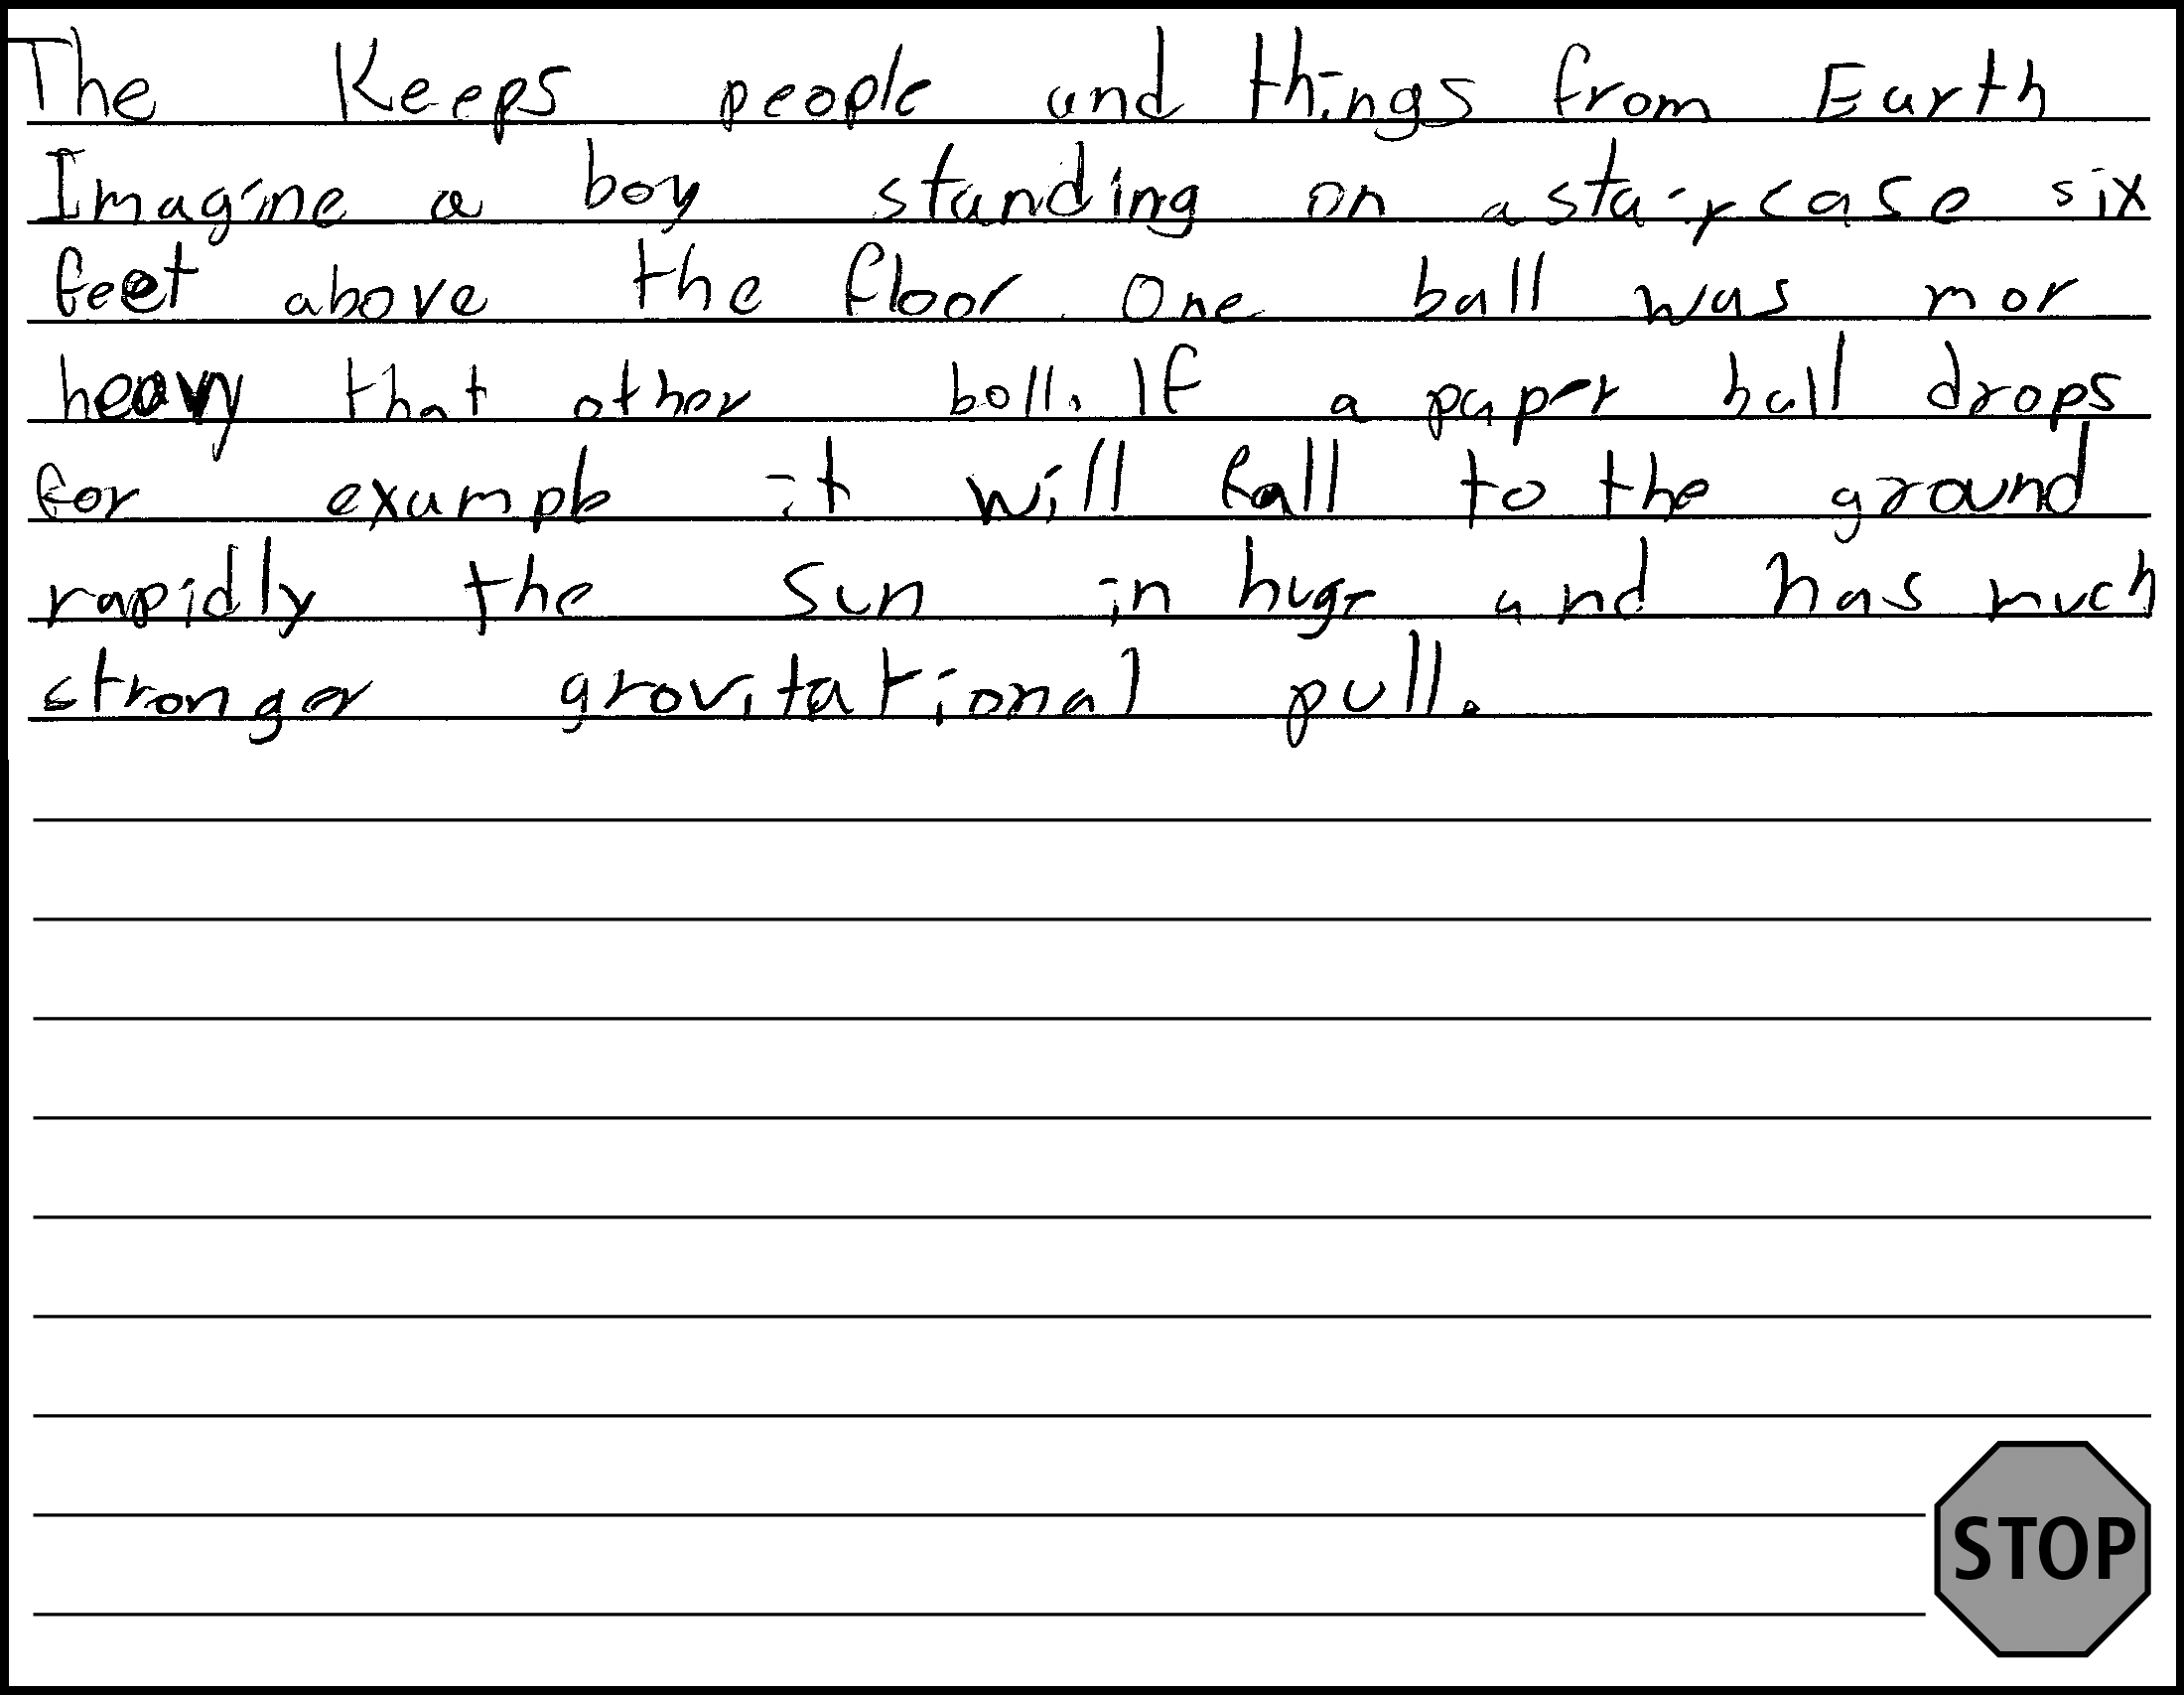 The Keeps people and things from Earth
Imagine a boy standing on a staircase six
feet above the floor. One ball was mor
heavy that other boll. If a paper ball drops
for example it will fall to the ground
rapidly the sun in huge and has much
stronger grovitational pull.
STOP